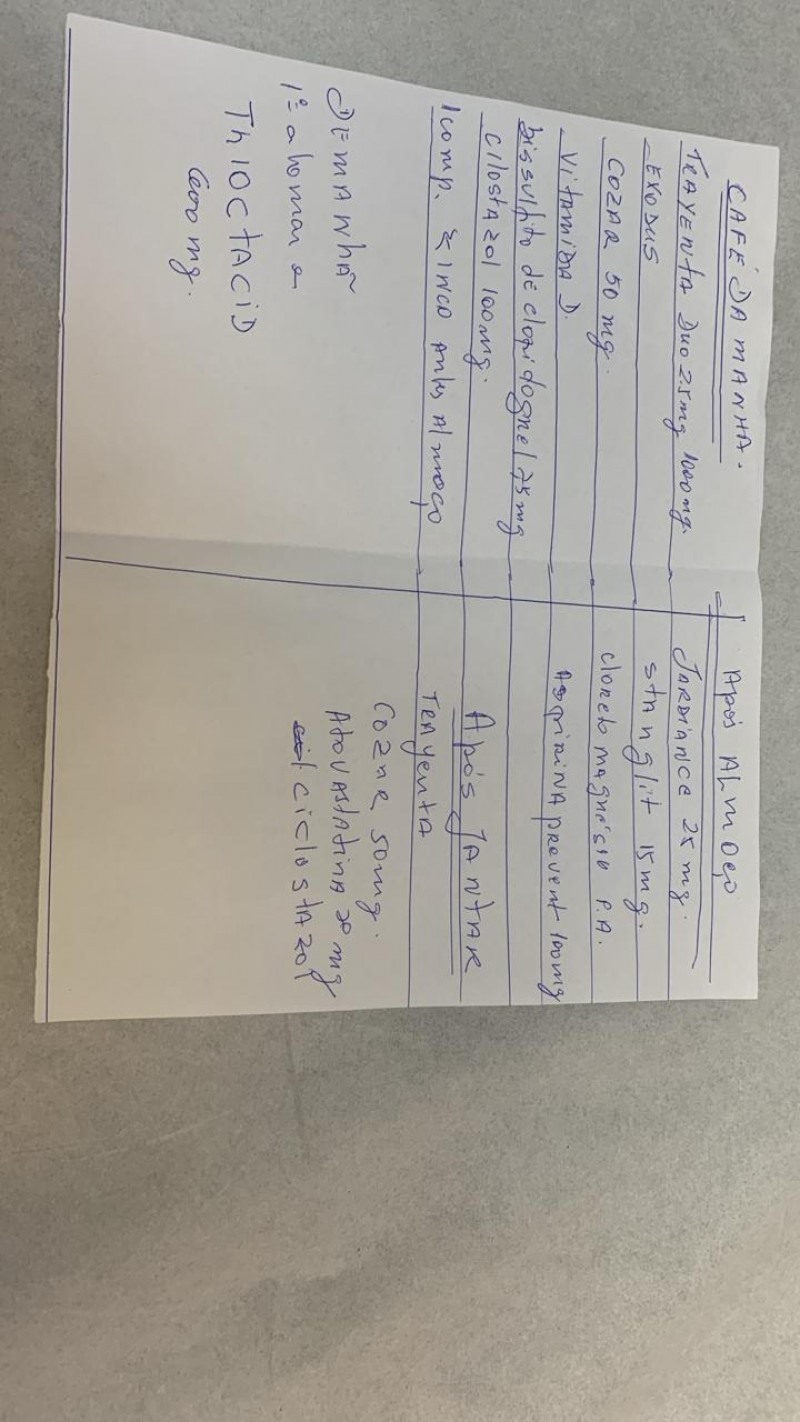 CAFÉ DA MANHA.
TRAYENTA DUO 2.5mg 1000mg.
EXODUS
COZAR 50 mg.
VITAMINA D.
Bissulfito DE clopidogrel 75mg
CilostAzol 100mg.
1 comp. ZINCO Antes Almoço
DE MANHÃ
1º a tomar a
ThiOCtACiD
600 mg.
Após ALMOÇO
JARDIANCE 25 mg.
stanglit 15mg.
cloreto magnésio P.A.
Aspirina prevent 100mg
Após JANTAR
TRAYENTA
COZAR 50mg.
AtovAstAtinA 20 mg
ciclostAzol